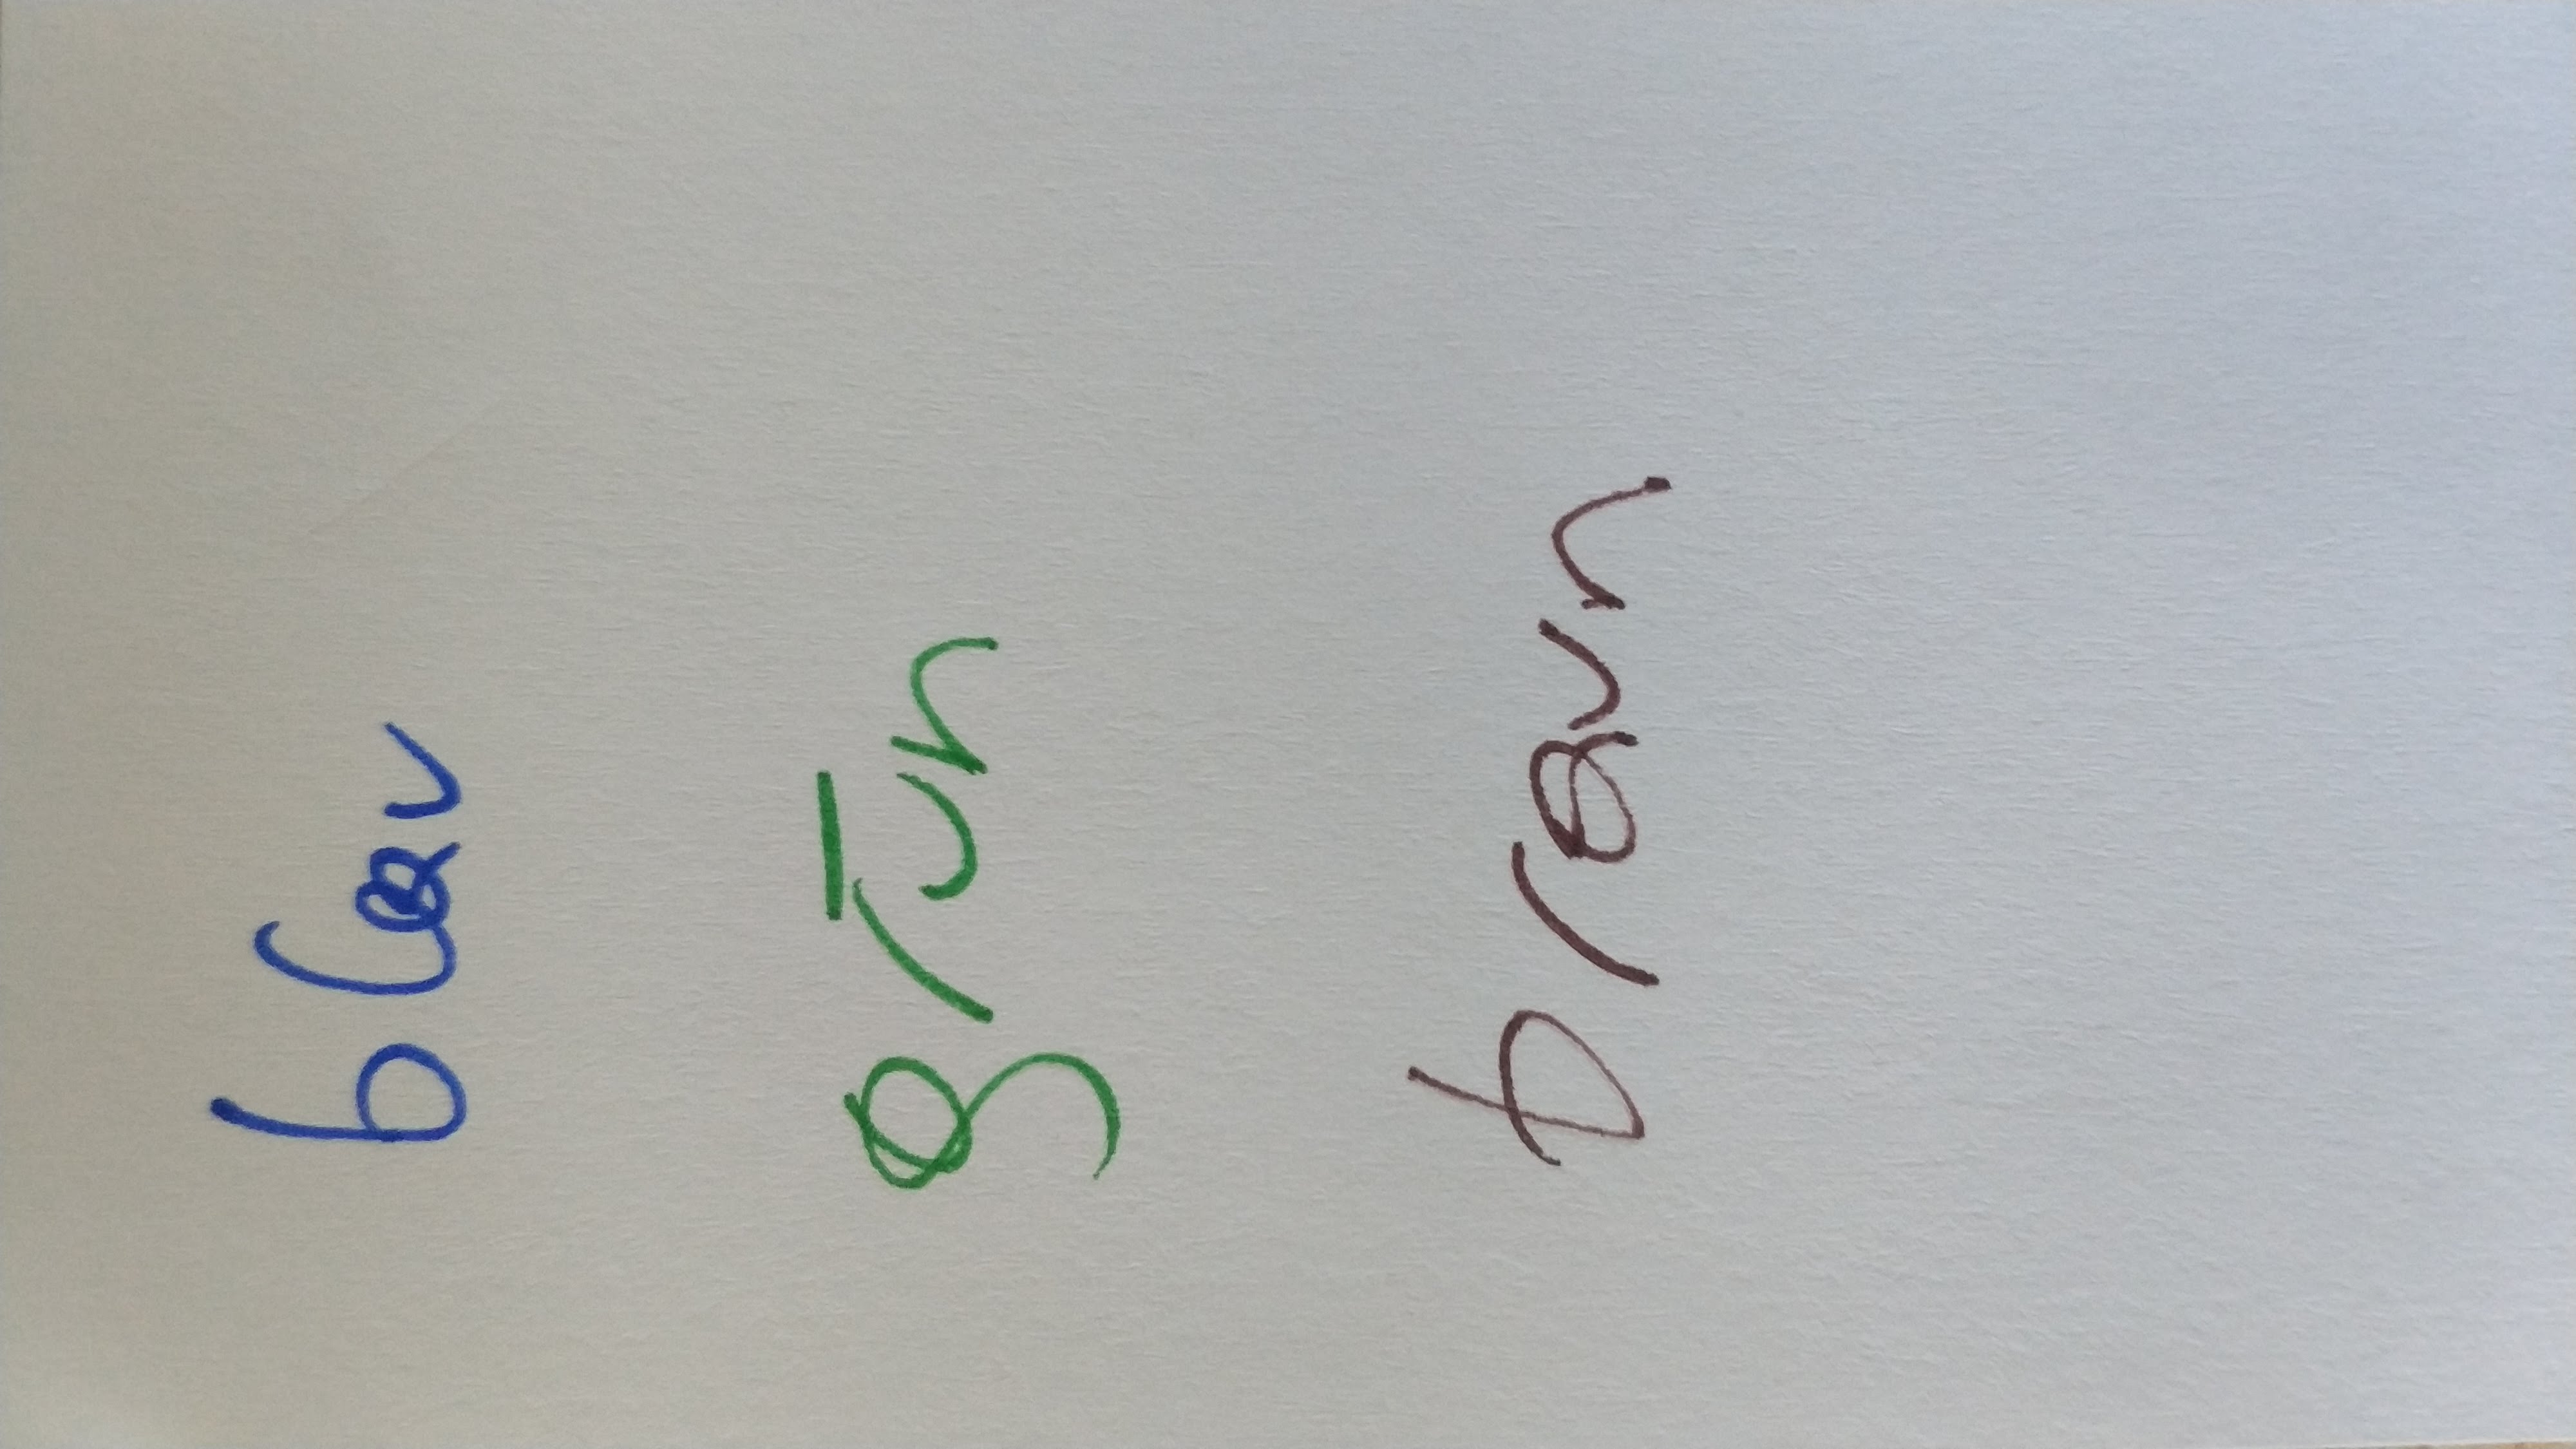 blau
grün
braun